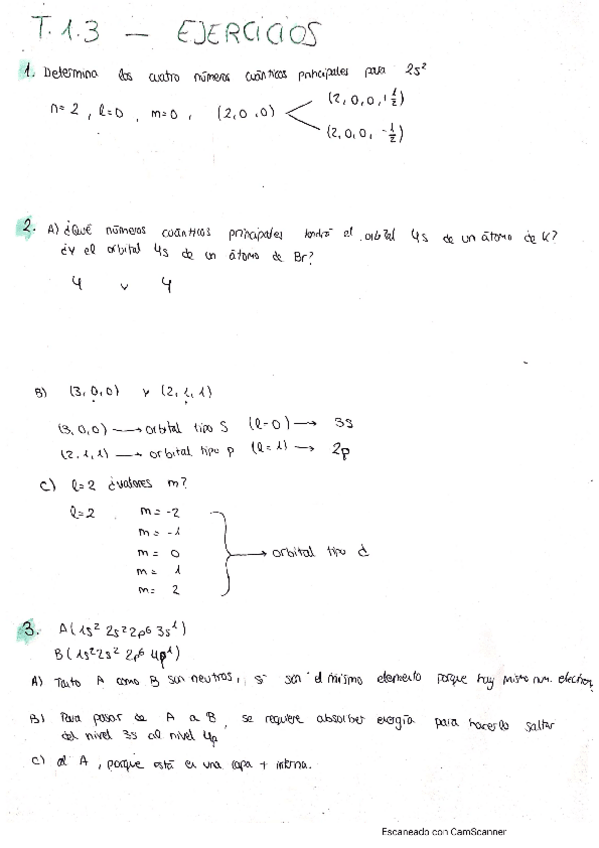 T.1.3 — EJERCICIOS
1. Determina los cuatro números cuánticos principales para 2s²
n=2, l=0, m=0, (2,0,0) (2,0,0,+1/2)
(2,0,0,-1/2)
2. A) ¿Qué números cuánticos principales tendrá el orbital 4s de un átomo de K?
¿Y el orbital 4s de un átomo de Br?
4 y 4
B) (3,0,0) y (2,1,1)
(3,0,0) → orbital tipo S (l=0) → 3s
(2,1,1) → orbital tipo p (l=1) → 2p
C) l=2 ¿valores m?
l=2 m=-2
m=-1
m=0 → orbital tipo d
m=1
m=2
3. A(1s² 2s² 2p⁶ 3s¹)
B(1s² 2s² 2p⁶ 4p¹)
A) Tanto A como B son neutros, si son el mismo elemento porque hay mismo num. electron
B) Para pasar de A a B, se requiere absorber energía para hacerlo saltar
del nivel 3s al nivel 4p
C) al A, porque está en una capa + interna.
Escaneado con CamScanner